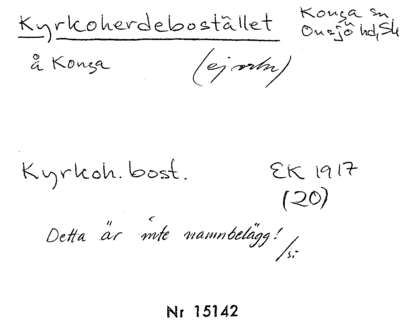 Kyrkoherdebostället Konga sn
Onsjö hd, Sk
å Konga (ej mbr)
Kyrkoh. bost. EK 1917
(20)
Detta är inte namnbelägg!
/si
Nr 15142